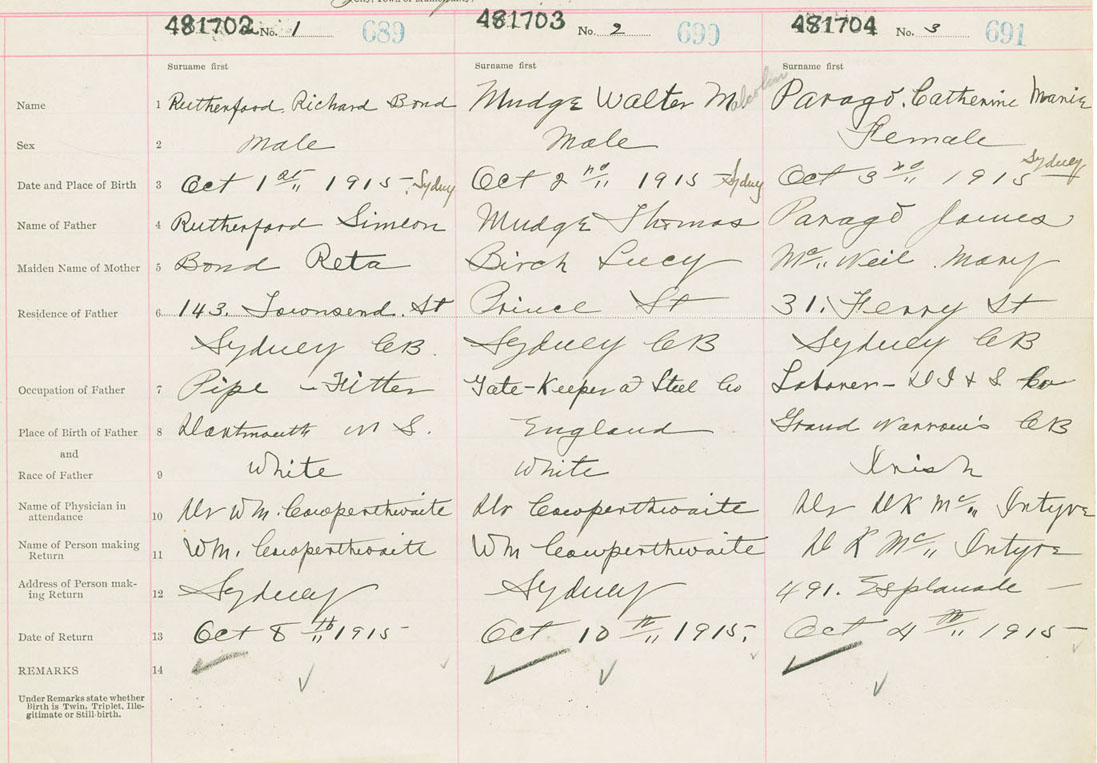 481702 No. 1 689 481703 No. 2 690 481704 No. 3 691
Surname first Surname first Surname first
Name 1 Rutherford, Richard Bond Mudge Walter Malcolm Parago, Catherine Marie
Sex 2 Male Male Female
Date and Place of Birth 3 Oct 1st 1915 Sydney Oct 2nd 1915 Sydney Oct 3rd 1915 Sydney
Name of Father 4 Rutherford Simeon Mudge Thomas Parago James
Maiden Name of Mother 5 Bond Reta Birch Lucy Mc Neil Mary
Residence of Father 6 143. Townsend. St Prince St 31. Ferry St
Sydney CB. Sydney CB Sydney CB
Occupation of Father 7 Pipe - Fitter Gate-Keeper Steel Co Laborer - D I & S Co
Place of Birth of Father 8 Dartmouth N S. England Grand Narrows CB
and
Race of Father 9 White White Irish
Name of Physician in
attendance 10 Dr Wm. Cowperthwaite Dr Cowperthwaite Dr D K Mc Intyre
Name of Person making
Return 11 Wm. Cowperthwaite Wm Cowperthwaite D K Mc Intyre
Address of Person mak-
ing Return 12 Sydney Sydney 491. Esplanade
Date of Return 13 Oct 8th 1915 Oct 10th 1915. Oct 4th 1915
REMARKS 14
Under Remarks state whether
Birth is Twin, Triplet, Ille-
gitimate or Still-birth.